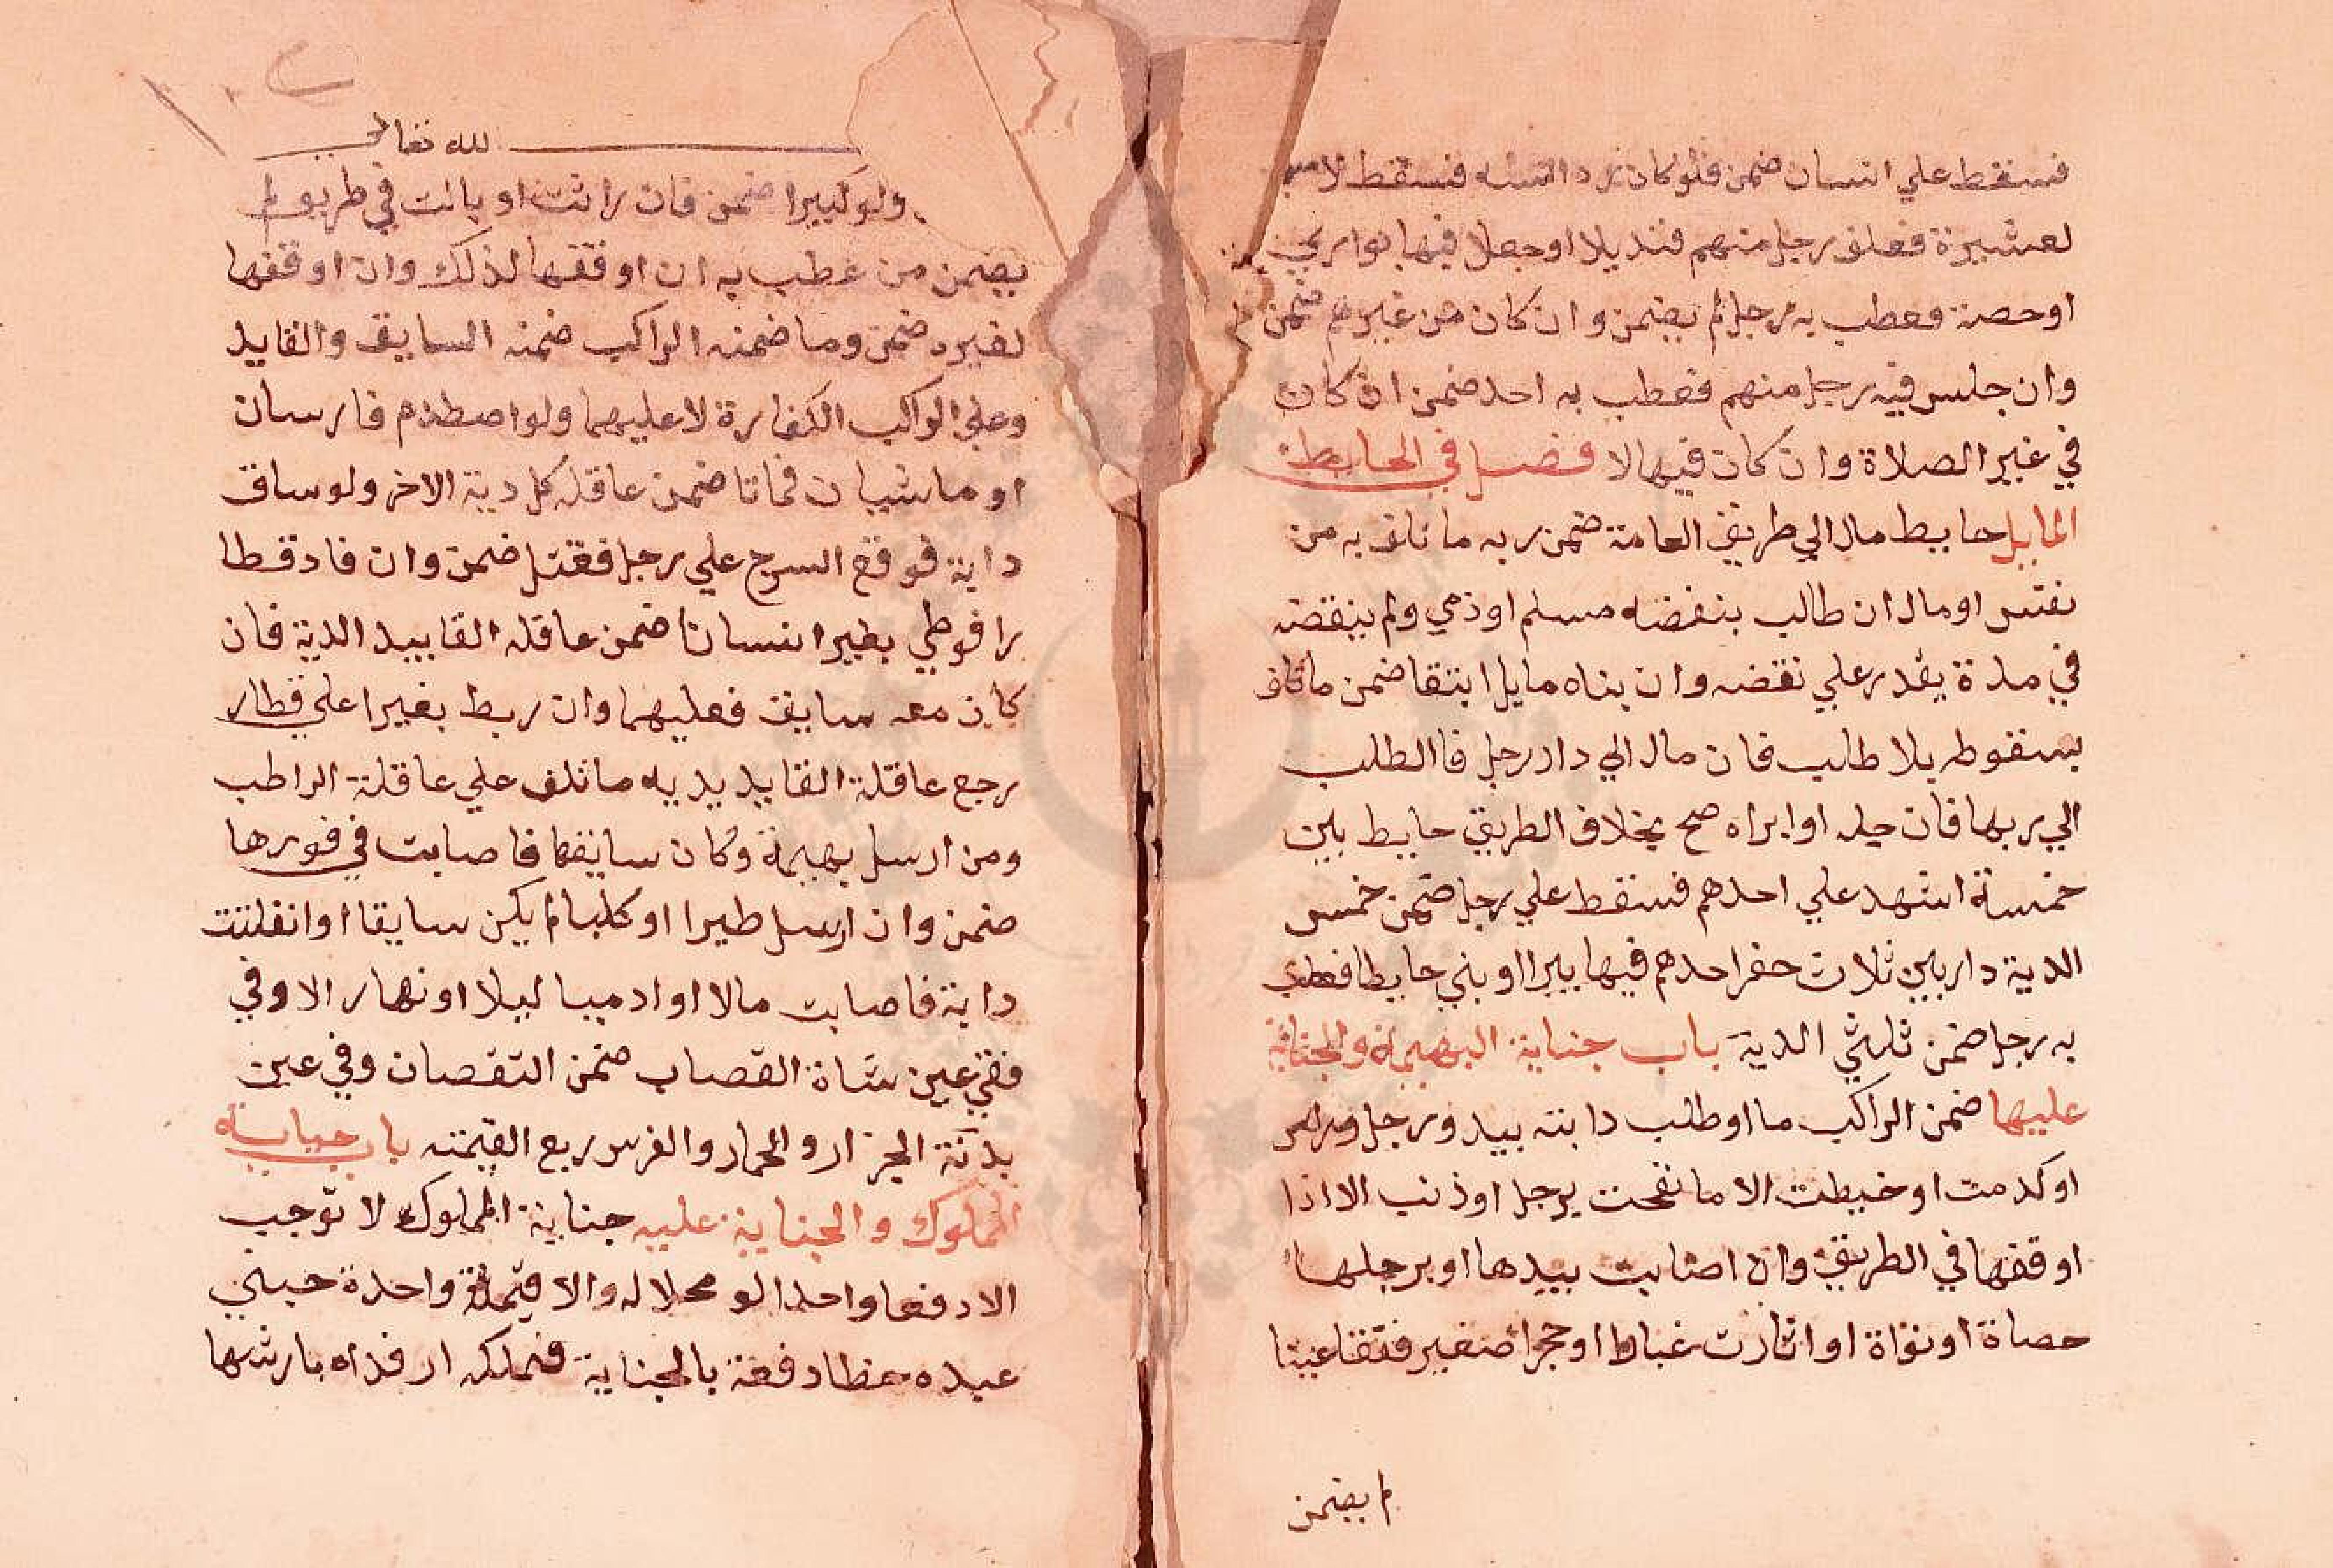 فسقط علي انسان ضمن فلو كان رداء لبسه فسقط لا مسجد
لعشيرة فعلق رجل منهم قنديلا او جعل فيها بواري
او حصة فعطب به رجل لم يضمن وان كان من غيرهم ضمن
وان جلس فيه رجل منهم فعطب به احد ضمن ان كان
في غير الصلاة وان كان فيها لا فصل في الحايط
المايل حايط مال الي طريق العامة ضمن ربه ما تلف به من
نفس او مال ان طالب بنقضه مسلم او ذمي ولم ينقضه
في مدة يقدر علي نقضه وان بناه مايلا ابتقا ضمن ما تلف
بسقوطه بلا طلب فان مال الي دار رجل فاالطلب
الي ربها فان جله او ابراه صح بخلاف الطريق حايط بين
خمسة اشهد علي احدهم فسقط علي رجل ضمن خمس
الدية دار بين ثلاث حفر احدهم فيها بيرا او بني حايطا فعطب
به رجل ضمن ثلثي الدية باب جناية البهيمة والجناية
عليها ضمن الراكب ما اوطلب دابته بيد ورجل وراس
او كدمت او خبطت الا ما نفحت برجل او ذنب الا اذا
اوقفها في الطريق وان اصابت بيدها او برجلها
حصاة او نواة او اثارت غبارا او حجرا صغير ففقا عينا
لم يضمن
لله تعالي
ولو كبيرا ضمن فان راثت او بالت في طريق لم
يضمن من عطب به ان اوقفها لذلك وان اوقفها
لغيره ضمن وما ضمنه الراكب ضمنه السايق والقايد
وعلي الراكب الكفارة لا عليهما ولو اصطدم فارسان
او ماشيان فماتا ضمن عاقلة كل دية الاخر ولو ساق
داية فوقع السرج علي رجل فقتل ضمن وان قاد قطا
را فوطي بعيرا انسانا ضمن عاقلة القاييد الدية فان
كان معه سايق فعليهما وان ربط بعيرا علي قطار
رجع عاقلة القايد بديه ما تلف علي عاقلة الراطب
ومن ارسل بهيمة وكان سايقها فاصابت في فورها
ضمن وان ارسل طيرا او كلبا لم يكن سايقا او انفلتت
داية فاصابت مالا او ادميا ليلا او نهارا لا وفي
فقي عين شاة القصاب ضمن النقصان وفي عين
بدنة الجزار والحمار والفرس ربع القيمته باب جناية
المملوك والجناية عليه جناية المملوك لا توجب
الا دفعا واحدا لو محلا له والا قيمة واحدة جني
عبده خطا دفعة بالجناية فيملكه او فداه بارشها